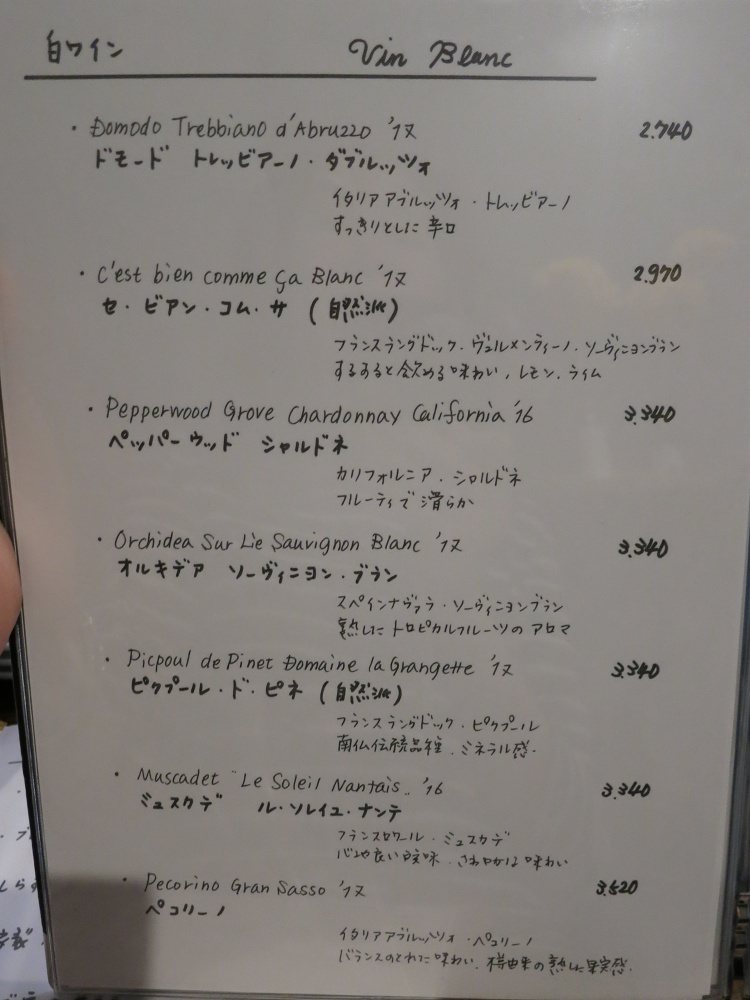 白ワイン
Vin Blanc
・Domodo Trebbiano d'Abruzzo '17 2.740
ドモード トレッビアーノ・ダブルッツォ
イタリアアブルッツォ・トレッビアーノ
すっきりとした辛口
・C'est bien comme ça Blanc '17 2.970
セ・ビアン・コム・サ (自然派)
フランスラングドック・ヴェルメンティーノ・ソーヴィニヨンブラン
するすると飲める味わい、レモン、ライム
・Pepperwood Grove Chardonnay California '16 3.340
ペッパーウッド シャルドネ
カリフォルニア・シャルドネ
フルーティで滑らか
・Orchidea Sur Lie Sauvignon Blanc '17 3.340
オルキデア ソーヴィニヨン・ブラン
スペインナヴァラ・ソーヴィニヨンブラン
熟したトロピカルフルーツのアロマ
・Picpoul de Pinet Domaine la Grangette '17 3.340
ピクプール・ド・ピネ (自然派)
フランスラングドック・ピクプール
南仏伝統品種、ミネラル感.
・Muscadet "Le Soleil Nantais" '16 3.340
ミュスカデ ル・ソレイユ・ナンテ
フランスロワール・ミュスカデ
心地良い酸味、さわやかな味わい
・Pecorino Gran Sasso '17 3.520
ペコリーノ
イタリアアブルッツォ・ペコリーノ
バランスのとれた味わい、樽由来の熟した果実感.